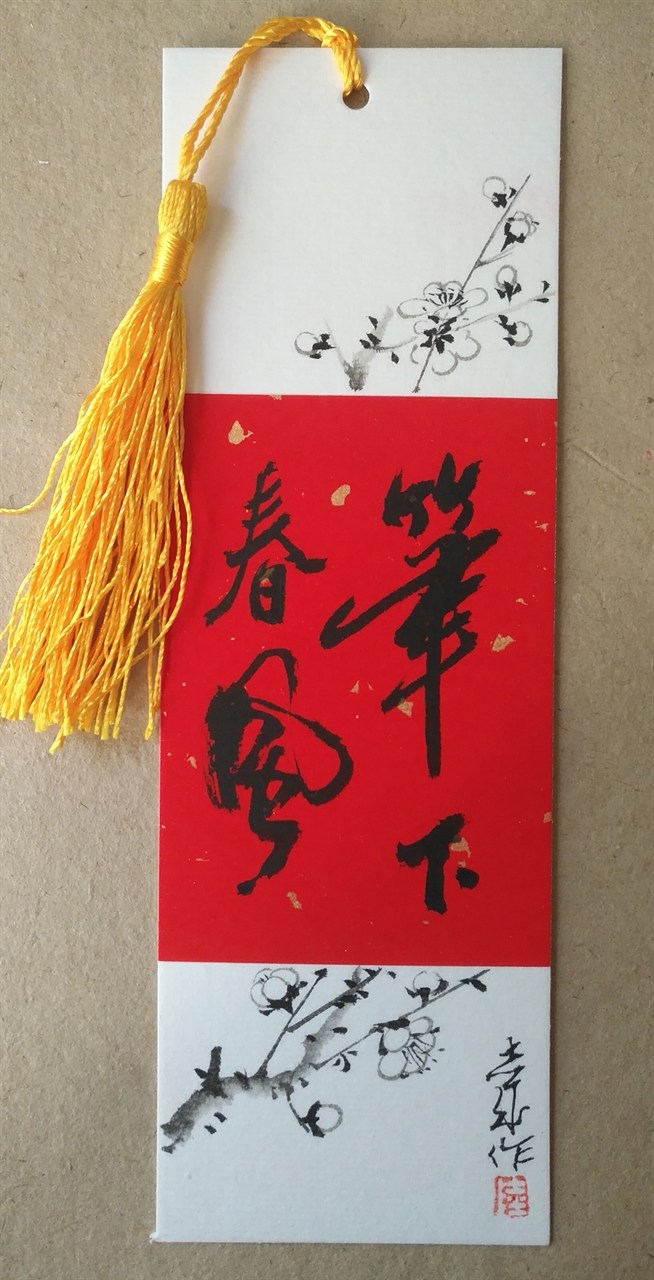 筆下
春風